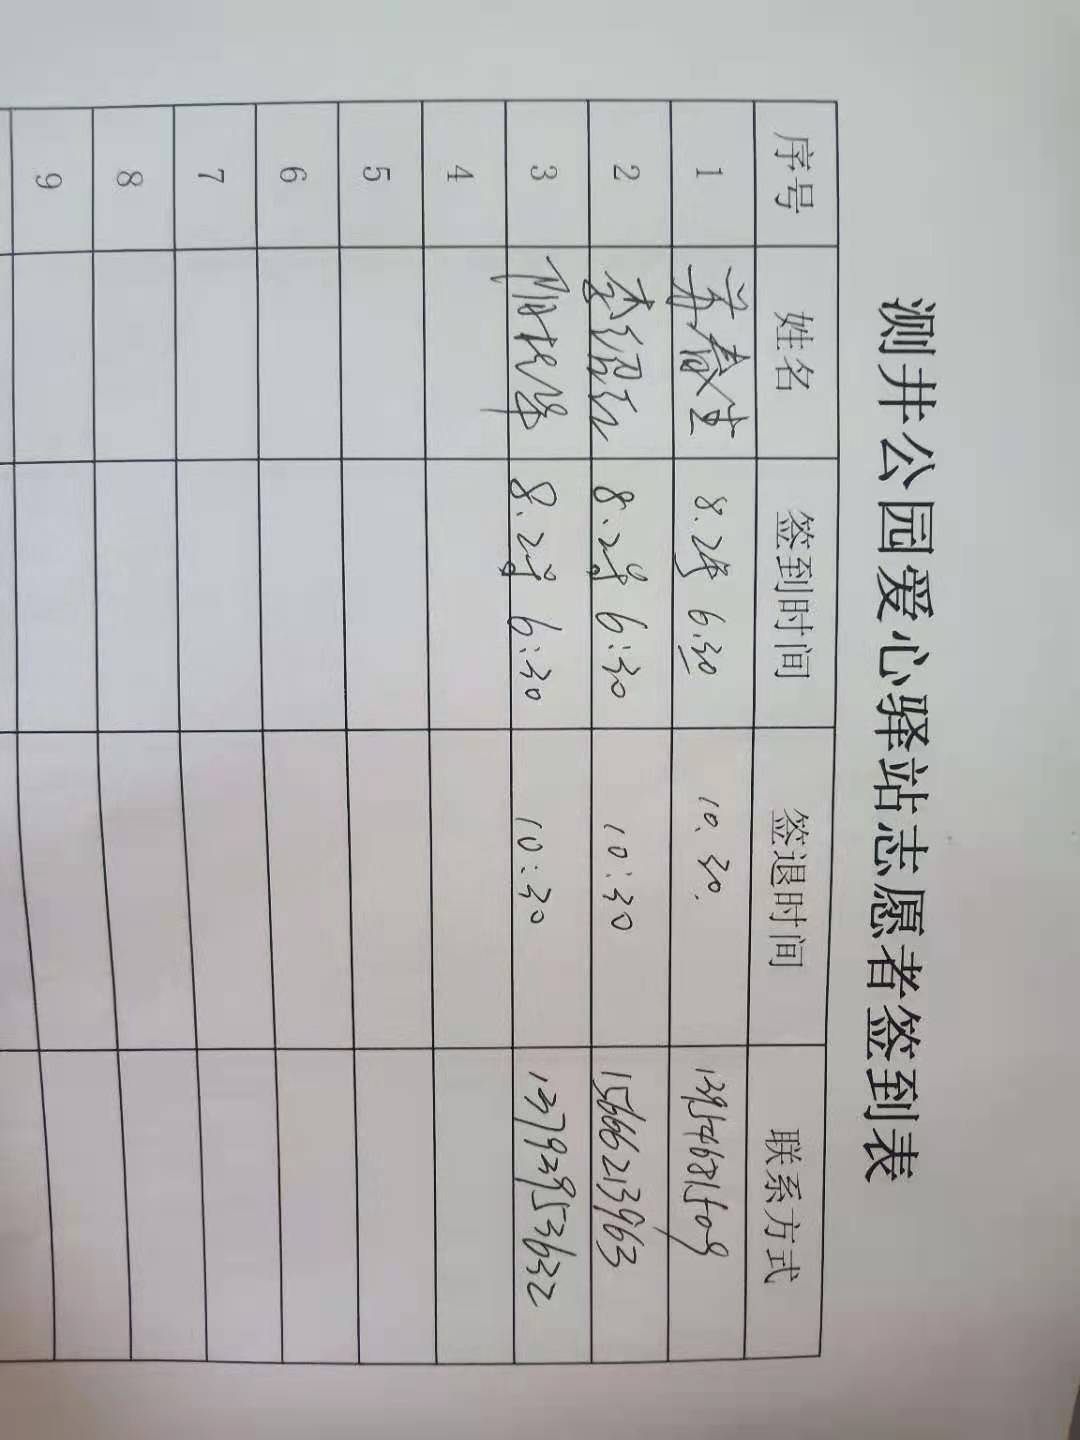 测井公园爱心驿站志愿者签到表
序号 姓名 签到时间 签退时间 联系方式
1 6:30 10:30 13954681509
2 6:30 10:30 15666213963
3 6:30 10:30 13793953632
4
5
6
7
8
9